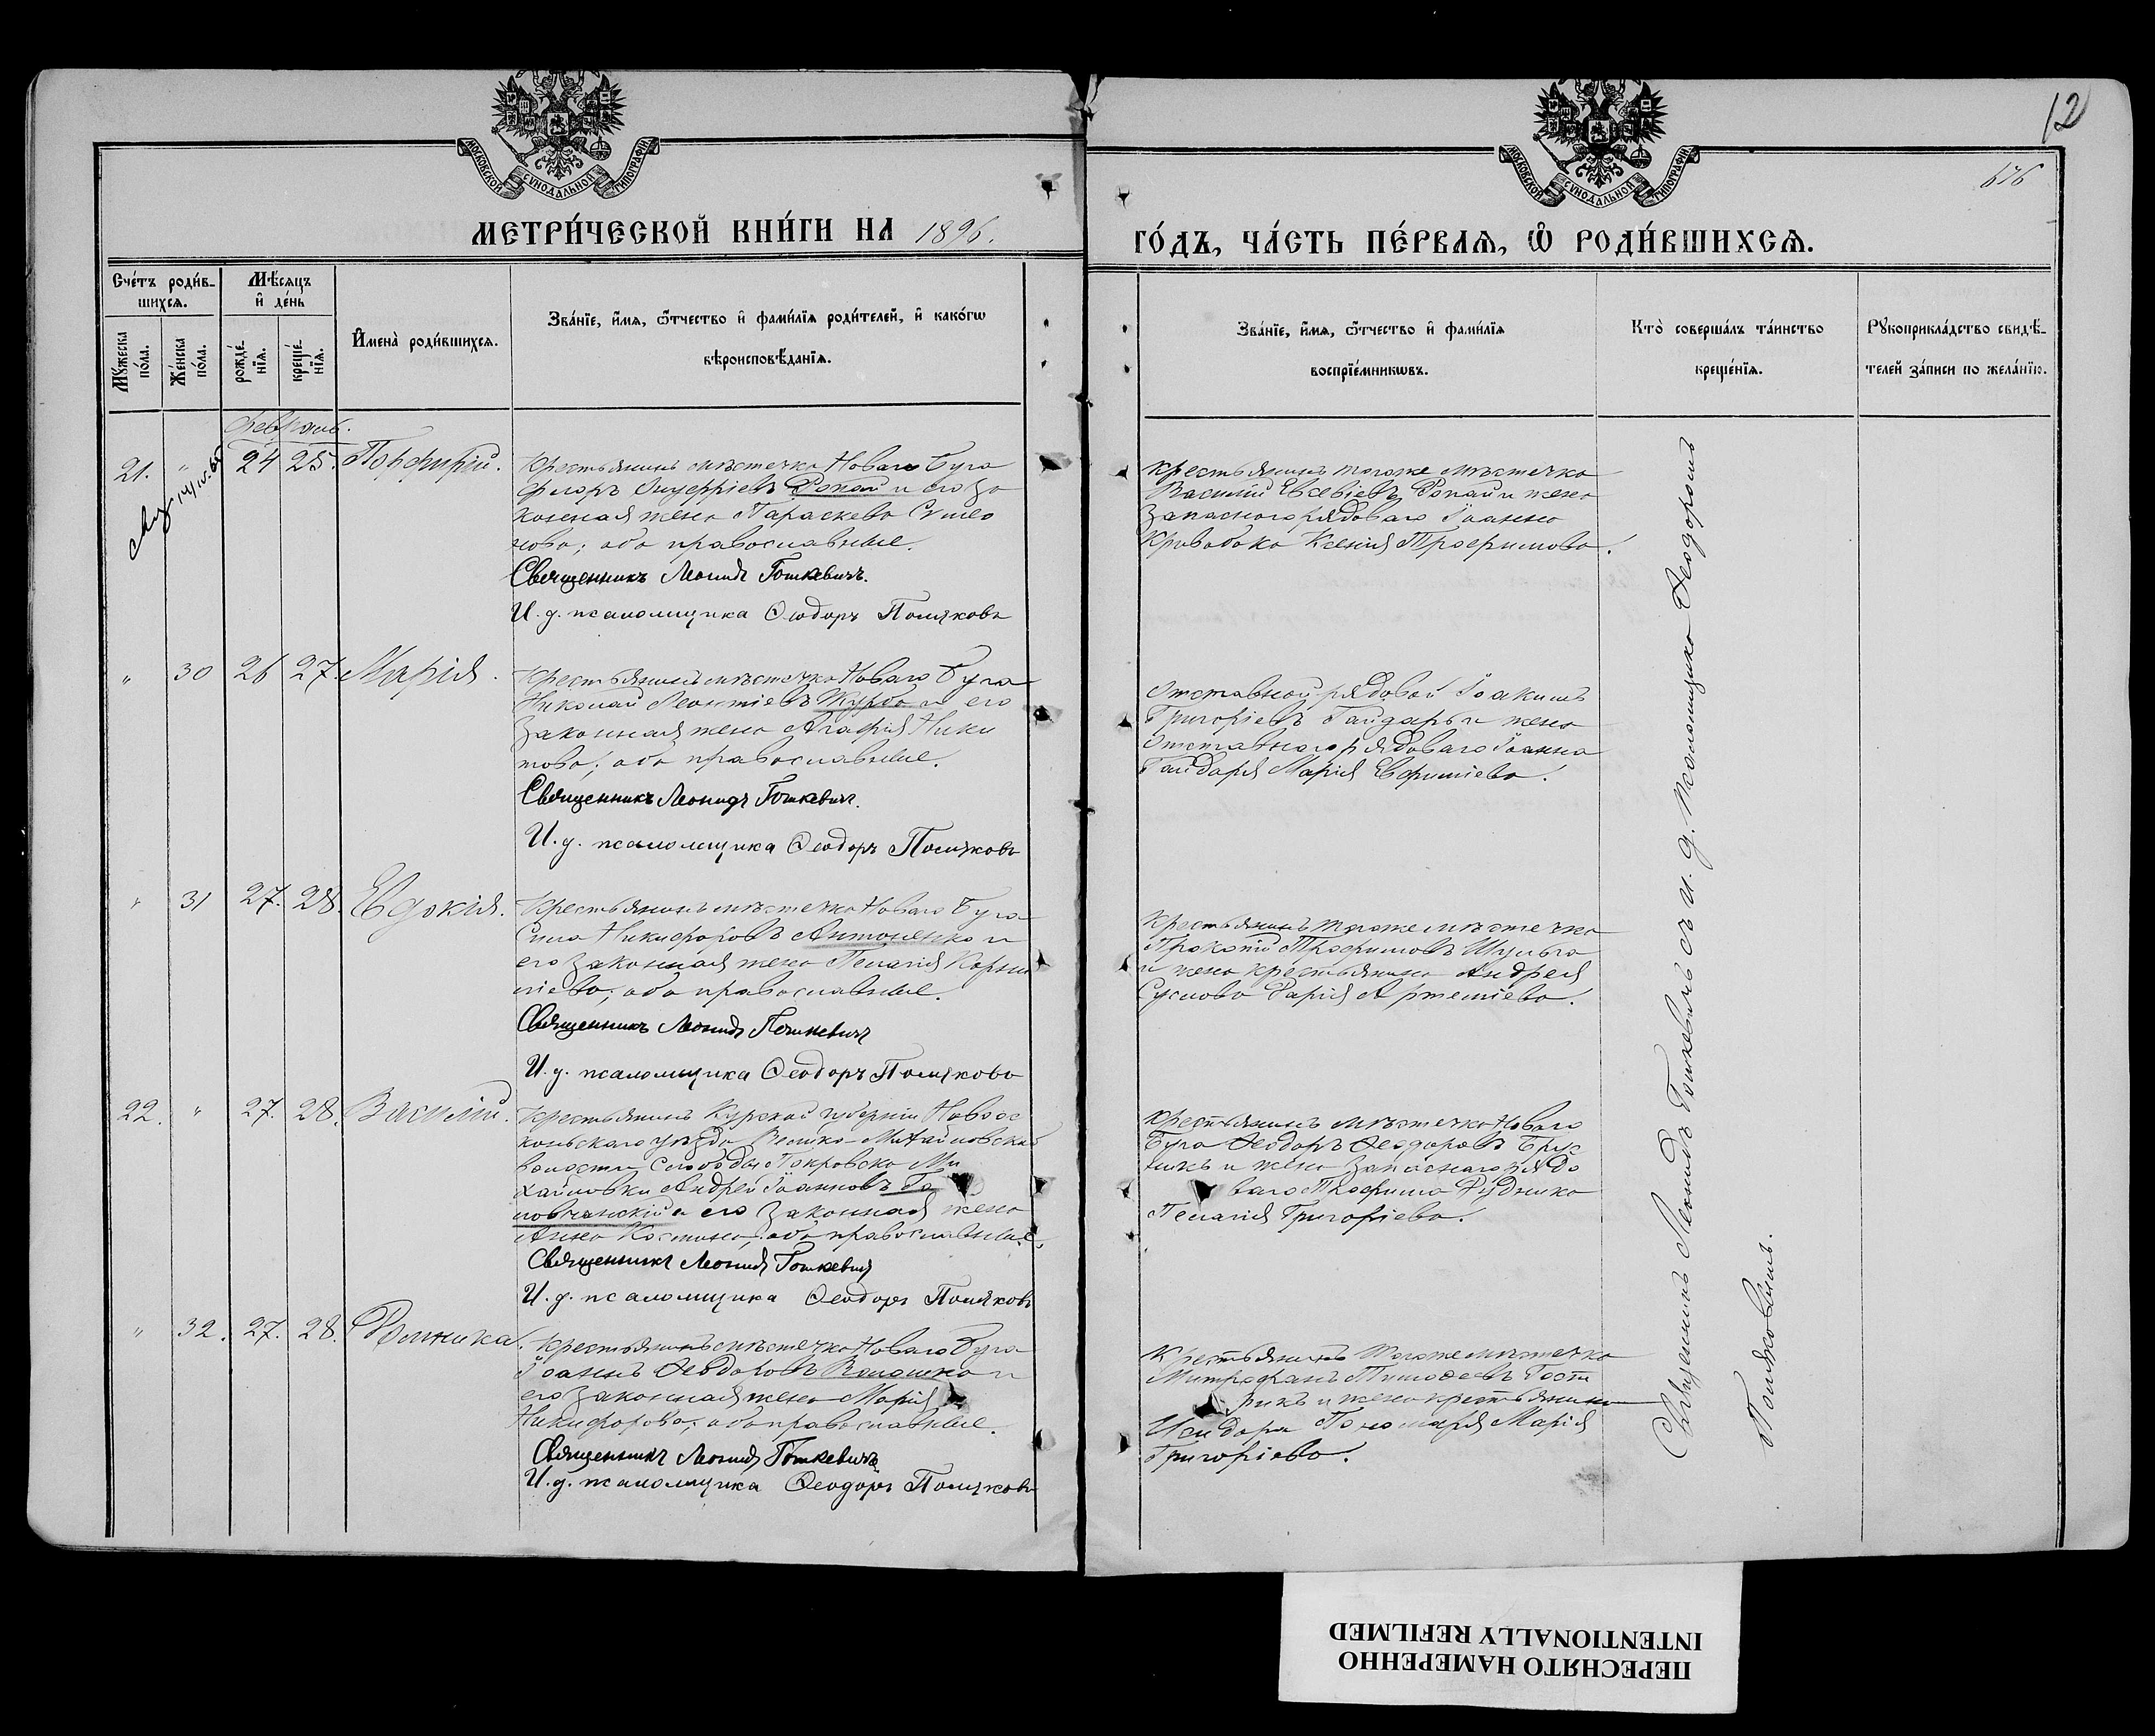 12
676
МОСКОВСКОЙ СѴНОДАЛЬНОЙ ТИПОГРАФІИ
МОСКОВСКОЙ СѴНОДАЛЬНОЙ ТИПОГРАФІИ
МЕТРИ́ЧЕСКОЙ КНИ́ГИ НА 1896.
ГО́ДЪ, ЧА́СТЬ ПЕ́РВАѦ, Ѿ РОДИ́ВШИХСѦ.
Сче́тъ роди́вшихсѧ.
Мꙋ́жеска по́ла.
Же́нска по́ла.
Мѣ́сѧцъ и҆ де́нь
рожде́нїѧ.
креще́нїѧ.
И҆мена̀ роди́вшихсѧ.
Зва́нїе, и҆́мѧ, ѻ҆́тчество и҆ фами́лїѧ роди́телей, и҆ како́гѡ
вѣроисповѣ́данїѧ.
Зва́нїе, и҆́мѧ, ѻ҆́тчество и҆ фами́лїѧ
воспрїе́мникѡвъ.
Кто̀ соверша́лъ та́инство
креще́нїѧ.
Рꙋкоприкла́дство свидѣ́-
телей за́писи по жела́нїю.
Февраль.
21. " 24 25. Порфирій.
Крестьянинъ мѣстечка Новаго Буга
Флоръ Онуфріевъ Ропай и его за
конная жена Параскева Симео
нова; оба православные.
Священникъ Леонидъ Гошкевичъ.
И. д. псаломщика Ѳеодоръ Поляковъ
Крестьянинъ тогоже мѣстечка
Василій Евсевіевъ Ропай и жена
запаснаго рядоваго Іоанна
Кривобока Ксенія Трофимова.
" 30 26 27. Марія.
Крестьянинъ мѣстечка Новаго Буга
Николай Леонтіевъ Журба и его
законная жена Агафія Ники
това; оба православные.
Священникъ Леонидъ Гошкевичъ.
И. д. псаломщика Ѳеодоръ Поляковъ
Отставной рядовой Іоакимъ
Григоріевъ Гайдарь и жена
отставнаго рядоваго Іоанна
Гайдаря Марія Ефиміева.
" 31 27. 28. Евдокія.
Крестьянинъ мѣстечка Новаго Буга
Сила Никифоровъ Антоненко и
его законная жена Пелагія Корни
ліева; оба православные.
Священникъ Леонидъ Гошкевичъ
И. д. псаломщика Ѳеодоръ Поляковъ
Крестьянинъ тогоже мѣстечка
Трофимовъ Шульга
и жена крестьянина Андрея
Суслова Дарія Артеміева.
22. " 27. 28. Василій.
Крестьянинъ Курской губерніи Новоос
кольскаго уѣзда Велико-Михайловской
волости Слободы Покровско Ми
хайловки Андрей Іоанновъ Го
ловчанскій и его законная жена
Анна Костина; оба православные.
Священникъ Леонидъ Гошкевичъ
И. д. псаломщика Ѳеодоръ Поляковъ
Крестьянинъ мѣстечка Новаго
Буга Ѳеодоръ Ѳеодоровъ
и жена запаснаго рядо
ваго Трофима Рудника
Пелагія Григоріева.
" 32. 27. 28. Домника.
Крестьянинъ мѣстечка Новаго Буга
Іоаннъ Ѳеодоровъ Волошко и
его законная жена Марія
Никифорова; оба православные.
Священникъ Леонидъ Гошкевичъ
И. д. псаломщика Ѳеодоръ Поляковъ
Крестьянинъ тогоже мѣстечка
Митрофанъ Тимоѳеевъ
и жена крестьянина
Исидора Пономаря Марія
Григоріева.
Священникъ Леонидъ Гошкевичъ съ и. д. псаломщика Ѳеодоромъ
Поляковымъ.
ПЕРЕСНЯТО НАМЕРЕННО
INTENTIONALLY REFILMED